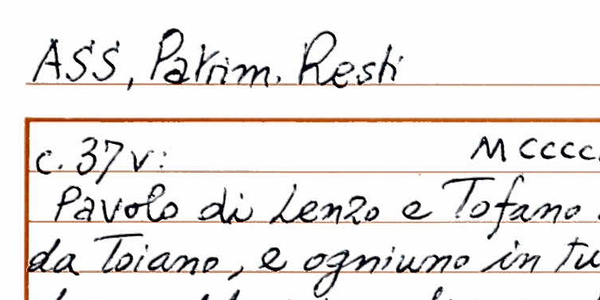 ASS, Patrim. Resti
c. 37v: MCCCC.
Pavolo di Lenzo e Tofano
da Toiano, e ogniuno in tu